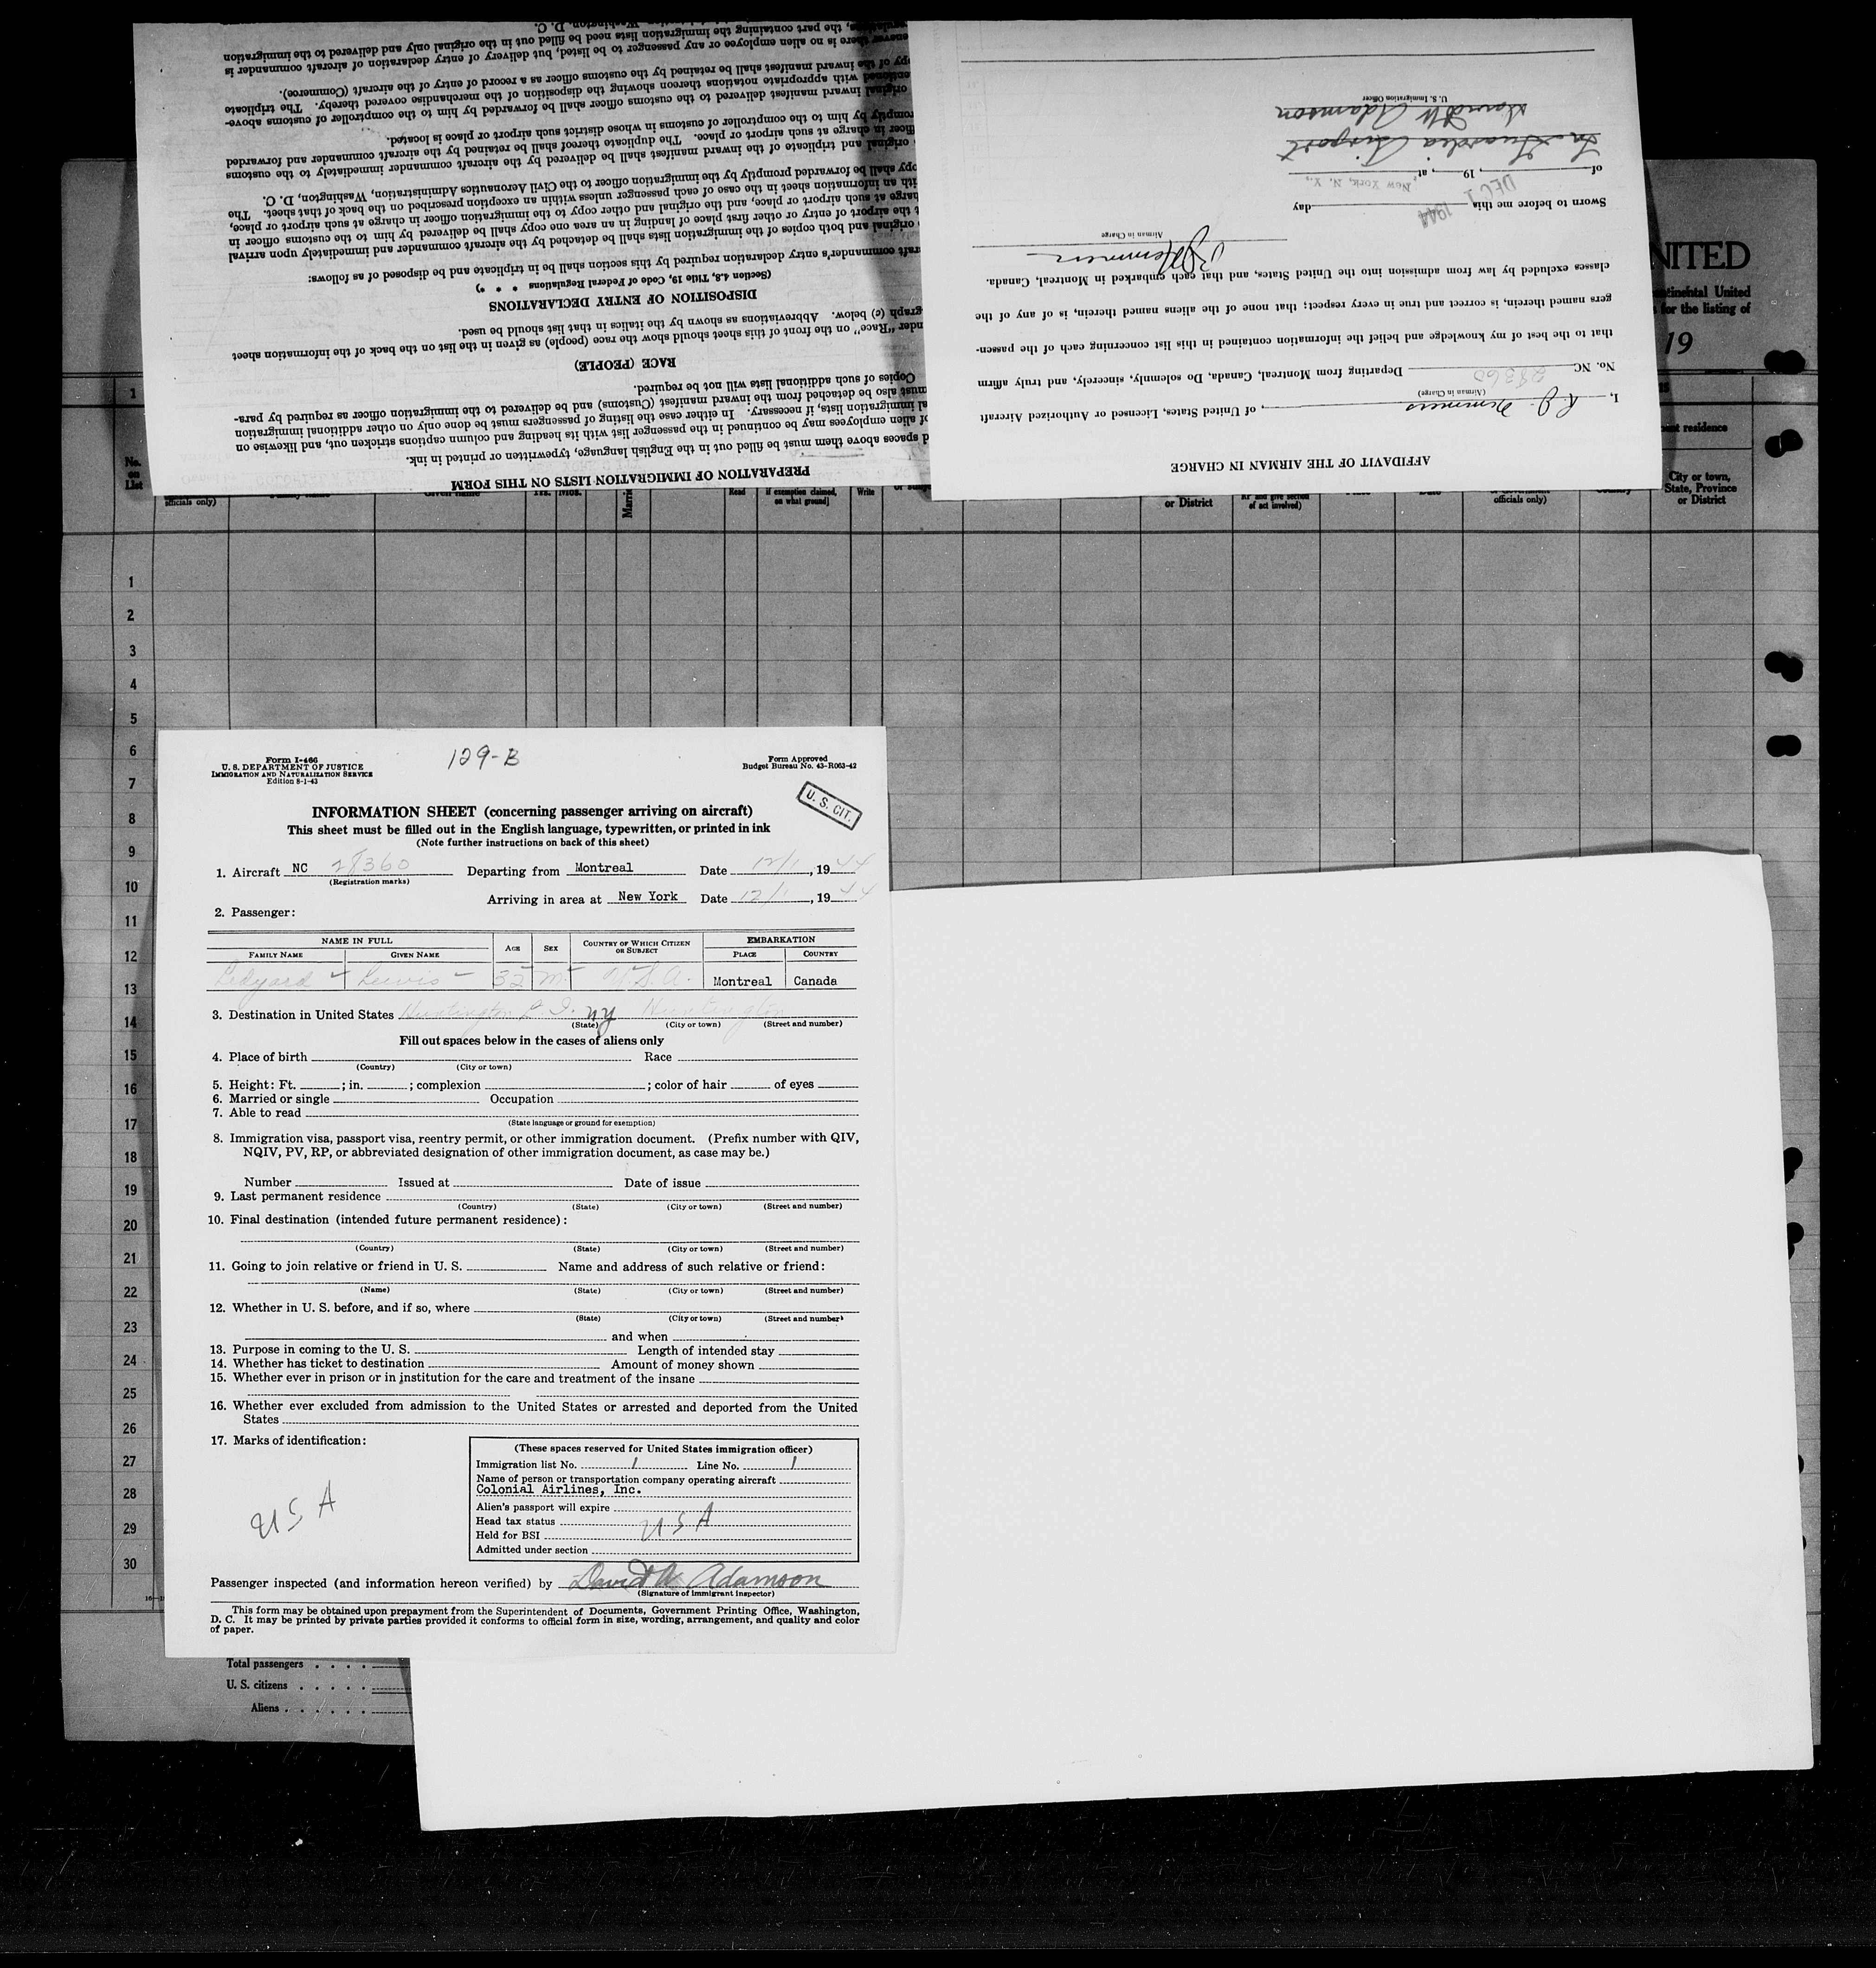 regulations, the part containing the immigration lists need be filled out in the original only and delivered to the immigration
there is no alien employee or any passenger to be listed, but delivery of entry declaration of aircraft commander is
copy of the inward manifest shall be retained by the customs officer as a record of entry of the aircraft (Commerce).
with appropriate notations thereon showing the disposition of the merchandise covered thereby. The triplicate
original inward manifest delivered to the customs officer shall be forwarded by him to the comptroller of customs above-
promptly by him to the comptroller of customs in whose district such airport or place is located.
officer in charge at such airport or place. The duplicate thereof shall be retained by the aircraft commander and forwarded
original and triplicate of the inward manifest shall be delivered by the aircraft commander immediately to the customs
copy shall be forwarded promptly by the immigration officer to the Civil Aeronautics Administration, Washington, D. C.
with an information sheet in the case of each passenger unless within an exception prescribed on the back of that sheet. The
charge at such airport or place, and the original and other copy to the immigration officer in charge at such airport or place,
at the airport of entry or other first place of landing in an area one copy shall be delivered by him to the customs officer in
original and both copies of the immigration lists shall be detached by the aircraft commander and immediately upon arrival
aircraft commander's entry declaration required by this section shall be in triplicate and be disposed of as follows:
(Section 4.8, Title 19, Code of Federal Regulations * * *)
DISPOSITION OF ENTRY DECLARATIONS
graph (c) below. Abbreviations as shown by the italics in that list should be used.
under "Race" on the front of this sheet should show the race (people) as given in the list on the back of the information sheet
RACE (PEOPLE)
Copies of such additional lists will not be required.
must also be detached from the inward manifest (Customs) and be delivered to the immigration officer as required by para-
immigration lists, if necessary. In either case the listing of passengers must be done only on other additional immigration
of alien employees may be continued in the passenger list with its heading and column captions stricken out, and likewise on
spaces above them must be filled out in the English language, typewritten or printed in ink.
PREPARATION OF IMMIGRATION LISTS ON THIS FORM
AFFIDAVIT OF THE AIRMAN IN CHARGE
I, R. J. Nemmers, of United States, Licensed or Authorized Aircraft
(Airman in Charge)
No. NC 28360 Departing from Montreal, Canada, Do solemnly, sincerely, and truly affirm
that to the best of my knowledge and belief the information contained in this list concerning each of the passen-
gers named therein, is correct and true in every respect; that none of the aliens named therein, is of any of the
classes excluded by law from admission into the United States, and that each embarked in Montreal, Canada.
Airman in Charge
Sworn to before me this DEC 1 1944 day
of , 19 , at New York, N. Y.,
La Guardia Airport
David W Adamson
U. S. Immigration Officer
UNITED
continental United
for the listing of
19
1
residence
No.
on
List
officials only)
Given name
Read
if exemption claimed,
on what ground]
Write
or District
RP and give section
of act involved)
officials only)
City or town,
State, Province
or District
1
2
3
4
5
6
7
8
9
10
11
12
13
14
15
16
17
18
19
20
21
22
23
24
25
26
27
28
29
30
Form I-466
U. S. DEPARTMENT OF JUSTICE
IMMIGRATION AND NATURALIZATION SERVICE
Edition 8-1-43
129-B
Form Approved
Budget Bureau No. 43-R063-42
U. S. CIT.
INFORMATION SHEET (concerning passenger arriving on aircraft)
This sheet must be filled out in the English language, typewritten, or printed in ink
(Note further instructions on back of this sheet)
1. Aircraft NC 28360 Departing from Montreal Date 12/1, 1944
(Registration marks)
Arriving in area at New York Date 12/1, 1944
2. Passenger:
NAME IN FULL AGE SEX COUNTRY OF WHICH CITIZEN OR SUBJECT EMBARKATION
FAMILY NAME GIVEN NAME PLACE COUNTRY
Ledyard Lewis 32 M. U.S.A. Montreal Canada
3. Destination in United States Huntington L. I. NY Huntington
(State) (City or town) (Street and number)
Fill out spaces below in the cases of aliens only
4. Place of birth Race
(Country) (City or town)
5. Height: Ft. ; in. ; complexion ; color of hair of eyes
6. Married or single Occupation
7. Able to read
(State language or ground for exemption)
8. Immigration visa, passport visa, reentry permit, or other immigration document. (Prefix number with QIV,
NQIV, PV, RP, or abbreviated designation of other immigration document, as case may be.)
Number Issued at Date of issue
9. Last permanent residence
(Country) (State) (City or town) (Street and number)
10. Final destination (intended future permanent residence):
(Country) (State) (City or town) (Street and number)
11. Going to join relative or friend in U. S. Name and address of such relative or friend:
(Name) (State) (City or town) (Street and number)
12. Whether in U. S. before, and if so, where
(State) (City or town) (Street and number)
and when
13. Purpose in coming to the U. S. Length of intended stay
14. Whether has ticket to destination Amount of money shown
15. Whether ever in prison or in institution for the care and treatment of the insane
16. Whether ever excluded from admission to the United States or arrested and deported from the United
States
17. Marks of identification:
USA
(These spaces reserved for United States immigration officer)
Immigration list No. 1 Line No. 1
Name of person or transportation company operating aircraft
Colonial Airlines, Inc.
Alien's passport will expire
Head tax status
USA
Held for BSI
Admitted under section
Passenger inspected (and information hereon verified) by David W Adamson
(Signature of immigrant inspector)
This form may be obtained upon prepayment from the Superintendent of Documents, Government Printing Office, Washington,
D. C. It may be printed by private parties provided it conforms to official form in size, wording, arrangement, and quality and color
of paper.
Total passengers . . . .
U. S. citizens . . . . .
Aliens . . . . . .